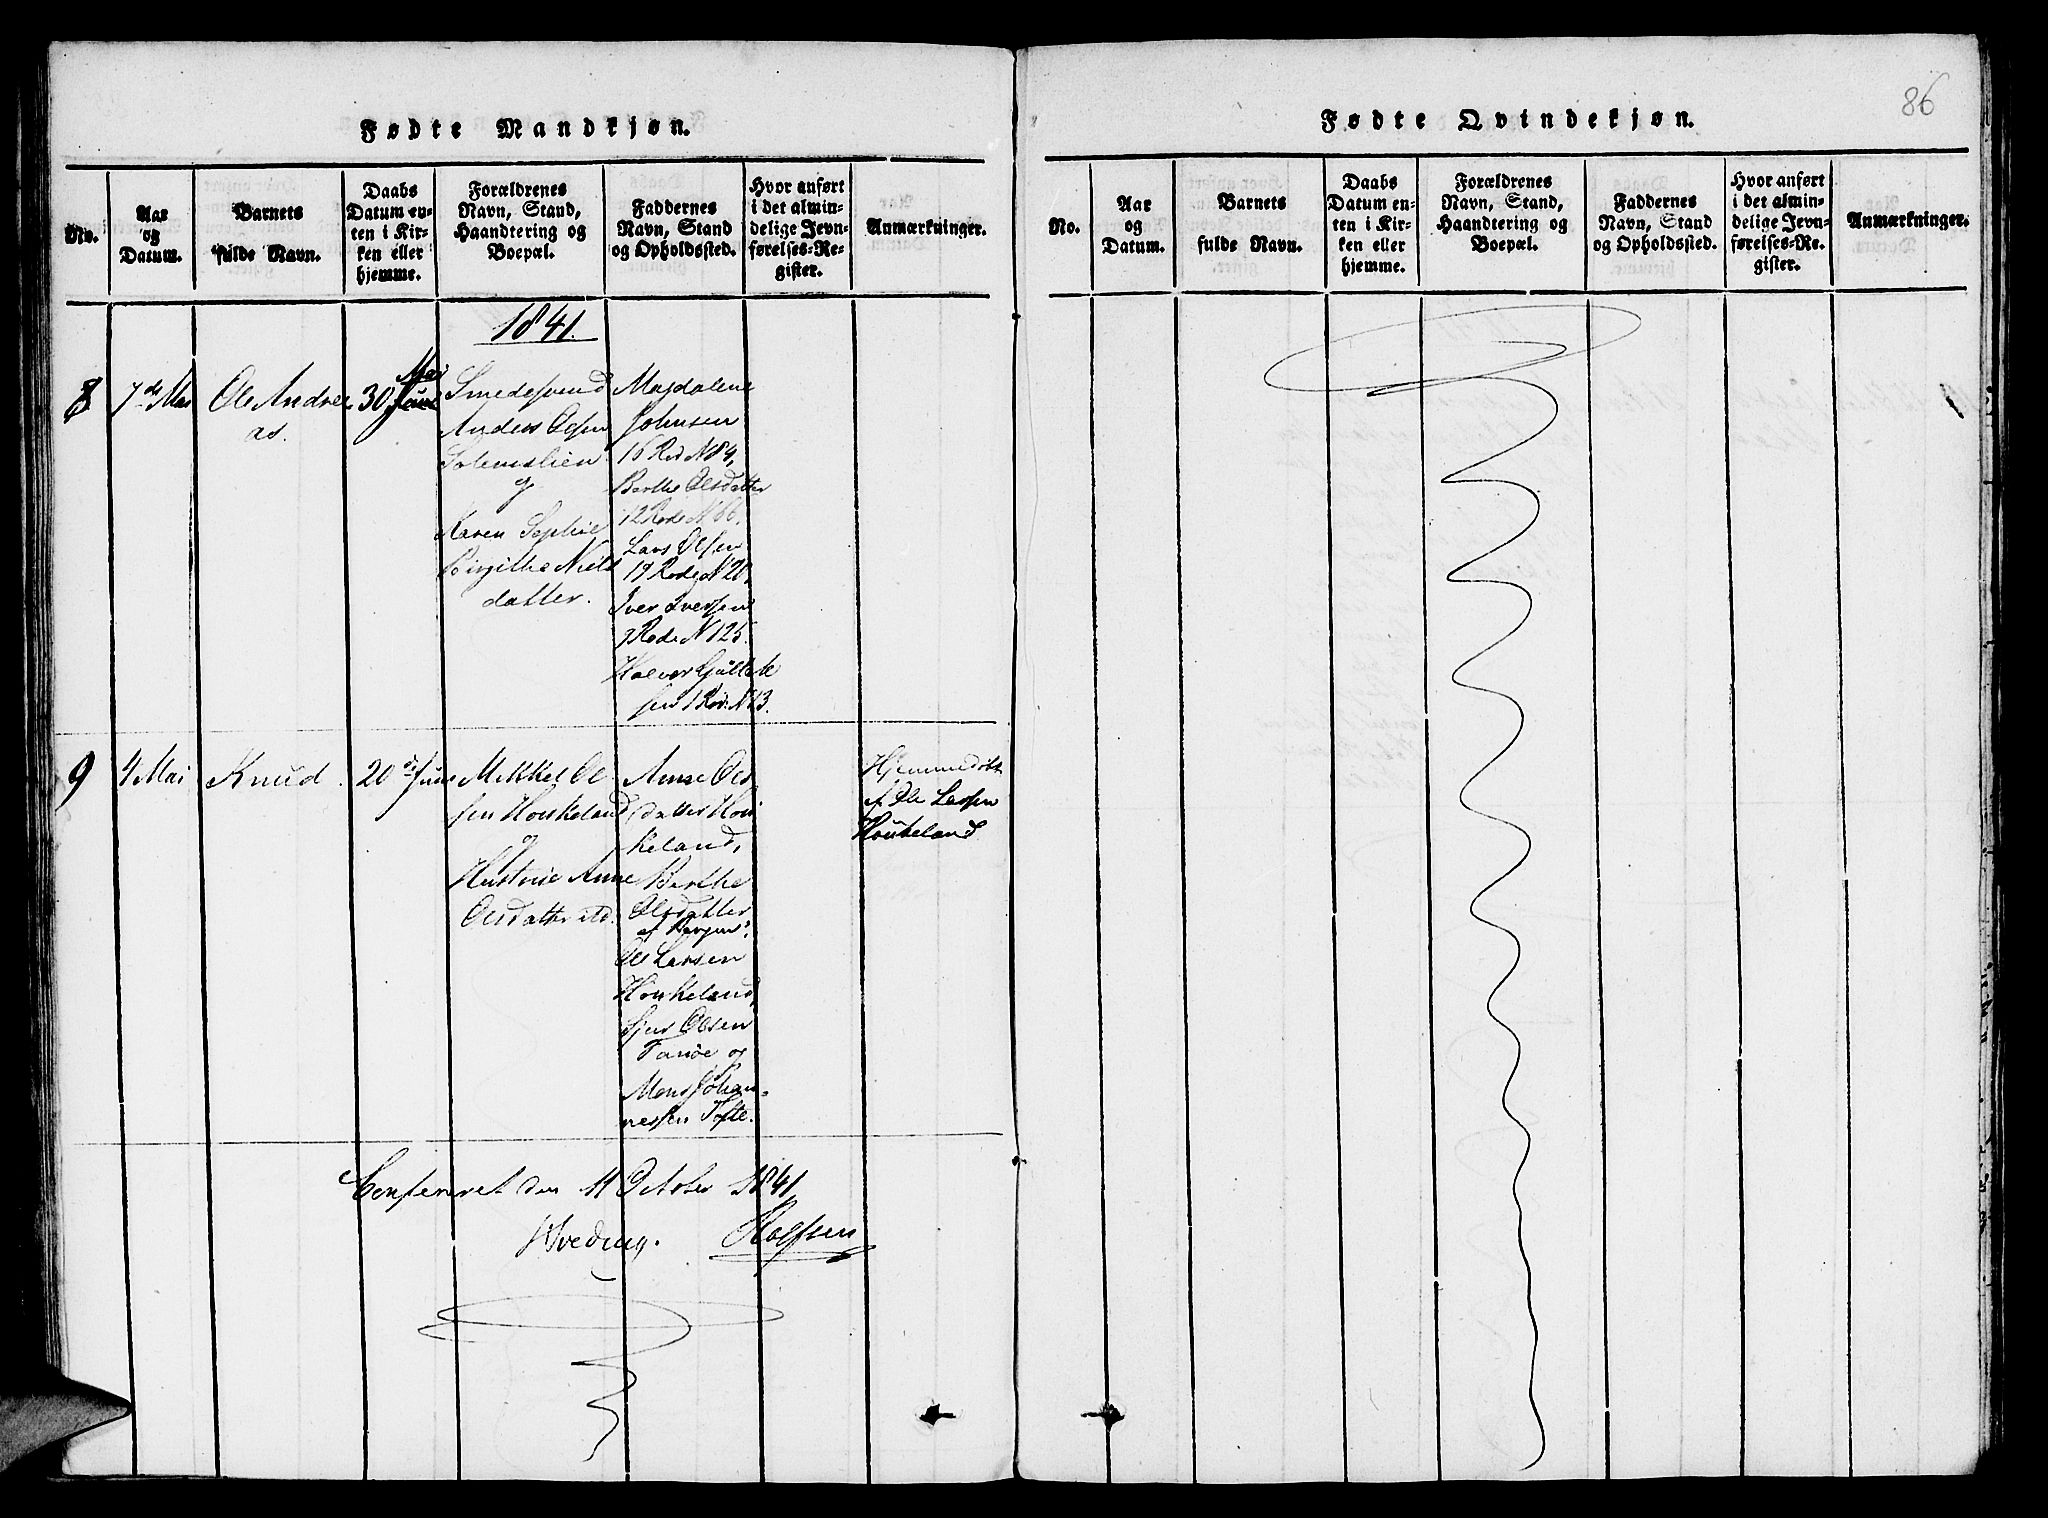 86
Fødte Mandkjøn.
No.
Aar
og
Datum.
Barnets
fulde Navn.
Daabs
Datum en-
ten i Kir-
ken eller
hjemme.
Forældrenes
Navn, Stand,
Haandtering og
Boepæl.
Faddernes
Navn, Stand
og Opholdssted.
Hvor anført
i det almin-
delige Jevn-
førelses-Re-
gister.
Anmærkninger.
1841.
8
7de Mai
Ole Andre
as.
30 Mai
Smedesvend
Anders Olsen
Solemslien
og
Karen Sophie
Birgithe Niels
datter.
Magdalene
Johnsen
16 Rod N 84,
Berthe Olsdatter
12 Rode N 66.
Lars Olsen
19 Rode N 20,
Iver Iversen
9 Rode N 125.
Halvor Gullak
sen 1 Rod. N 13.
9
4 Mai
Knud.
20 de Juni
Mikkel Ol
sen Houkeland
og
Hustrue Anne
Olsdatter ibd.
Anne Ols
datter Hou
keland,
Berthe
Olsdatter
af Bergen,
Ole Larsen
Houkeland,
Sjur Olsen
Tanøe og
Mons Johan-
nessen Tofte.
Hjemmedøbt
af Ole Larsen
Houkeland
Confereret den 11 October 1841
Hveding. Rolfsen
Fødte Qvindekjøn.
No.
Aar
og
Datum.
Barnets
fulde Navn.
Daabs
Datum en-
ten i Kir-
ken eller
hjemme.
Forældrenes
Navn, Stand,
Haandtering og
Boepæl.
Faddernes
Navn, Stand
og Opholdssted.
Hvor anført
i det almin-
delige Jevn-
førelses-Re-
gister.
Anmærkninger.